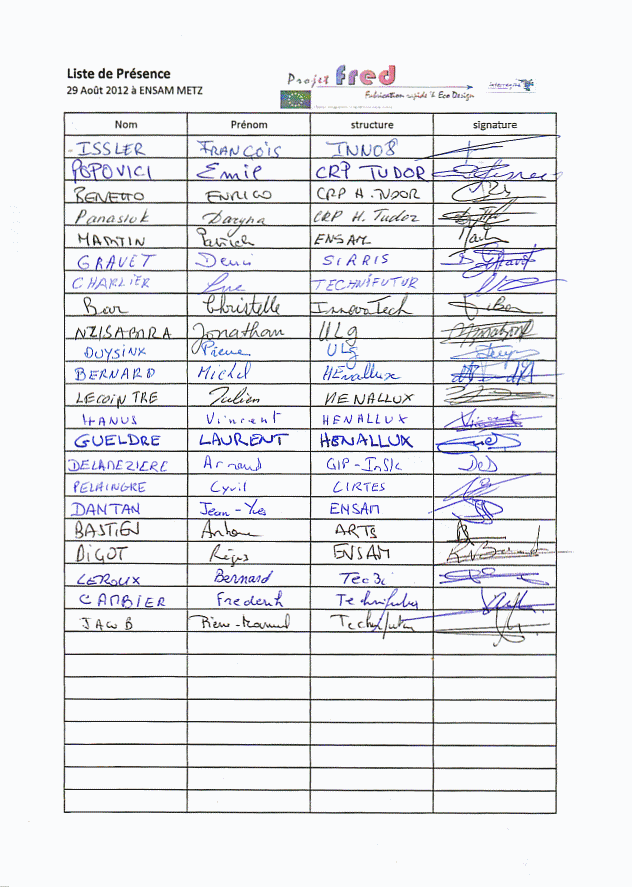 Liste de Présence
29 Août 2012 à ENSAM METZ
Projet fred
Fabrication rapide & Eco Design
Nom Prénom structure signature
ISSLER FRANÇOIS INNO8
POPOVICI Emil CRP TUDOR
BENETTO ENRICO CRP H. TUDOR
Panasiuk Daryna CRP H. Tudor
MARTIN Patrick ENSAM
GRAVET Denis SIRRIS
CHARLIER Luc TECHNIFUTUR
Bar Christelle InnovaTech
NZISABARA Jonathan ULg
DUYSINX Pierre ULg
BERNARD Michel HEnallux
LECOINTRE Julien HENALLUX
HANUS Vincent HENALLUX Vincent
GUELDRE LAURENT HENALLUX
DELAMEZIERE Arnaud GIP-InSIC
PELAINGRE Cyril CIRTES
DANTAN Jean-Yves ENSAM
BASTIEN ARTS
BIGOT Régis ENSAM
LEROUX Bernard
CAMBIER Technifutur
JACOB Pierre-Manuel Technifutur